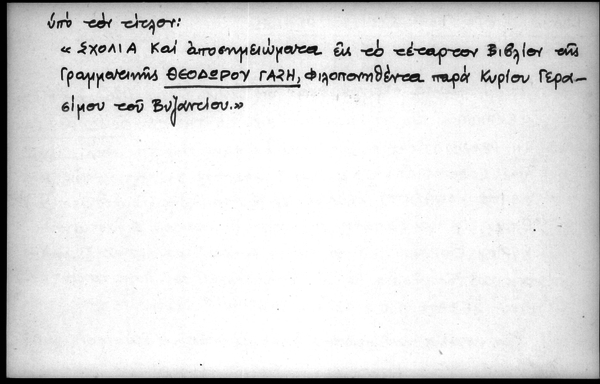 ὑπό τόν τίτλον:
« ΣΧΟΛΙΑ Καί ἀποσημειώματα εἰς τό τέταρτον Βιβλίον τῆς
Γραμματικῆς ΘΕΟΔΩΡΟΥ ΓΑΖΗ, Φιλοπονηθέντα παρά Κυρίου Γερα-
σίμου τοῦ Βυζαντίου.»